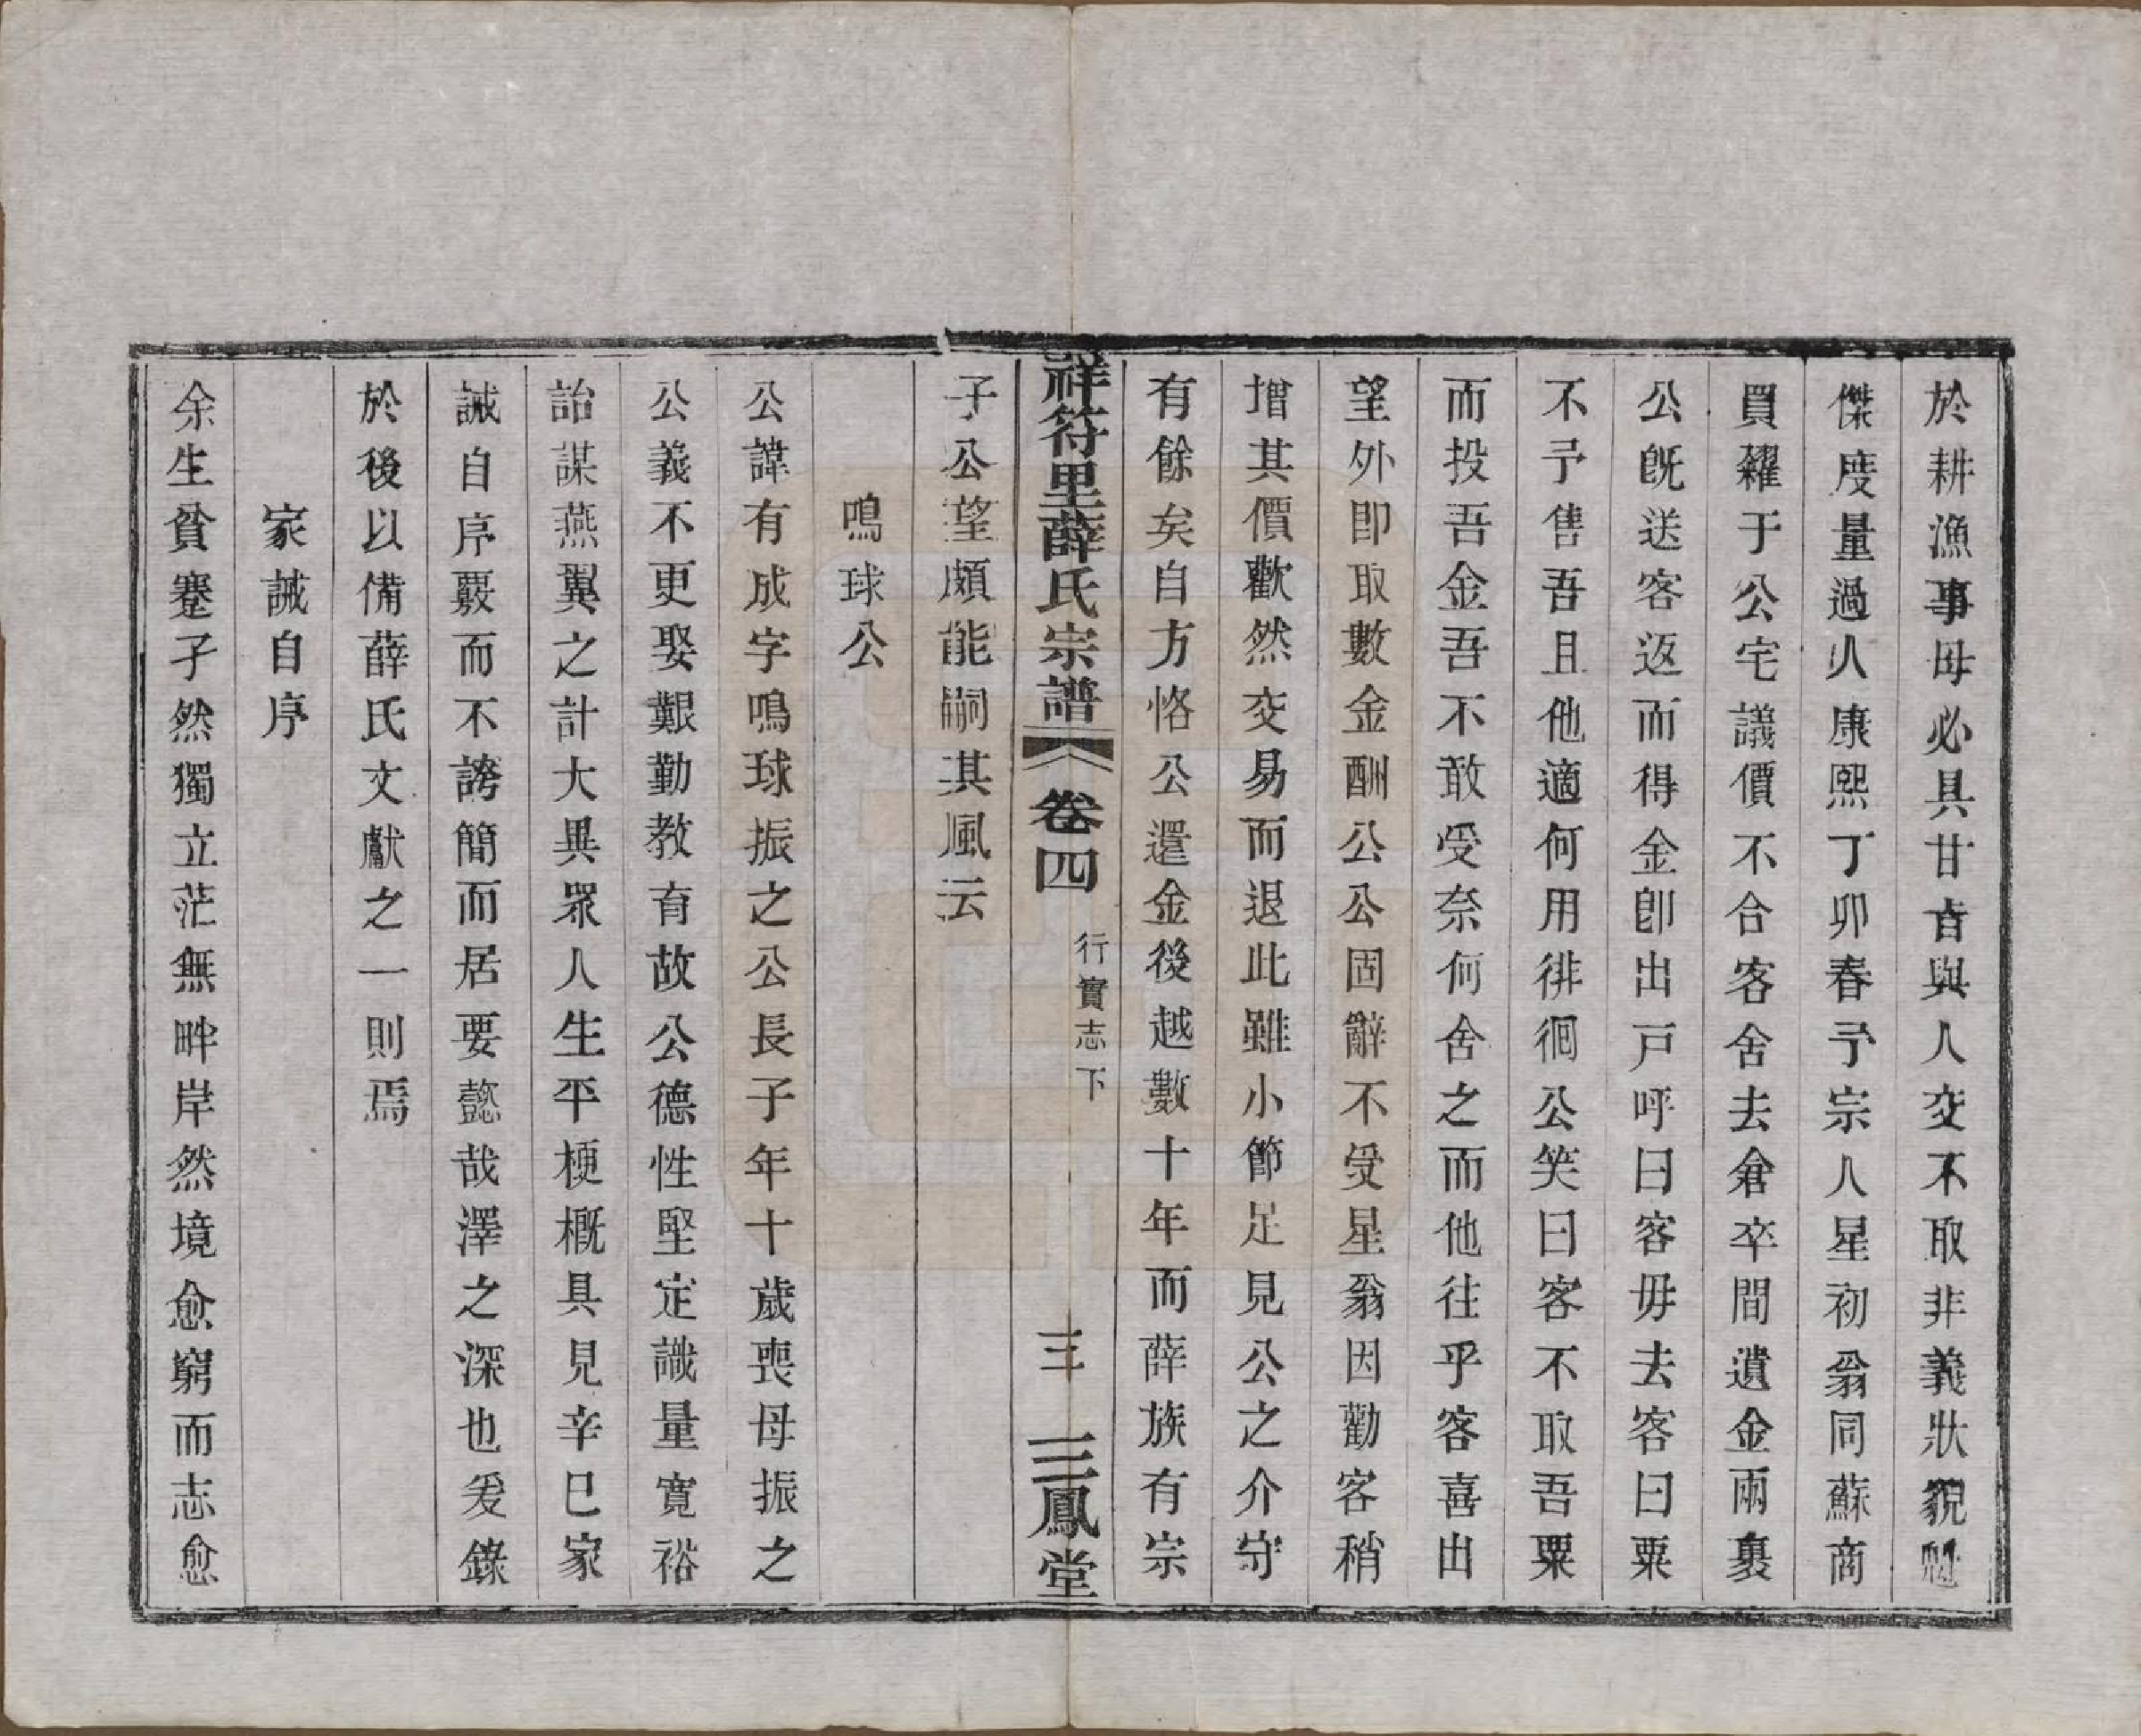 於耕漁事母必具甘旨與人交不取非義狀貌魁
傑度量過人康熙丁卯春予宗人星初翁同蘇商
買糴于公宅議價不合客舍去倉卒間遺金兩裹
公旣送客返而得金卽出戸呼曰客毋去客曰粟
不予售吾且他適何用徘徊公笑曰客不取吾粟
而投吾金吾不敢受奈何舍之而他往乎客喜出
望外卽取數金酬公公固辭不受星翁因勸客稍
增其價歡然交易而退此雖小節足見公之介守
有餘矣自方恪公還金後越數十年而薛族有宗
祥符里薛氏宗譜 卷四 行實志下 三 三鳳堂
子公望頗能嗣其風云
鳴球公
公諱有成字鳴球振之公長子年十歲喪母振之
公義不更娶艱勤教育故公德性堅定識量寬裕
詒謀燕翼之計大異眾人生平梗概具見辛巳家
誡自序覈而不誇簡而居要懿哉澤之深也爰錄
於後以備薛氏文獻之一則焉
家誡自序
余生貧蹇孑然獨立茫無畔岸然境愈窮而志愈